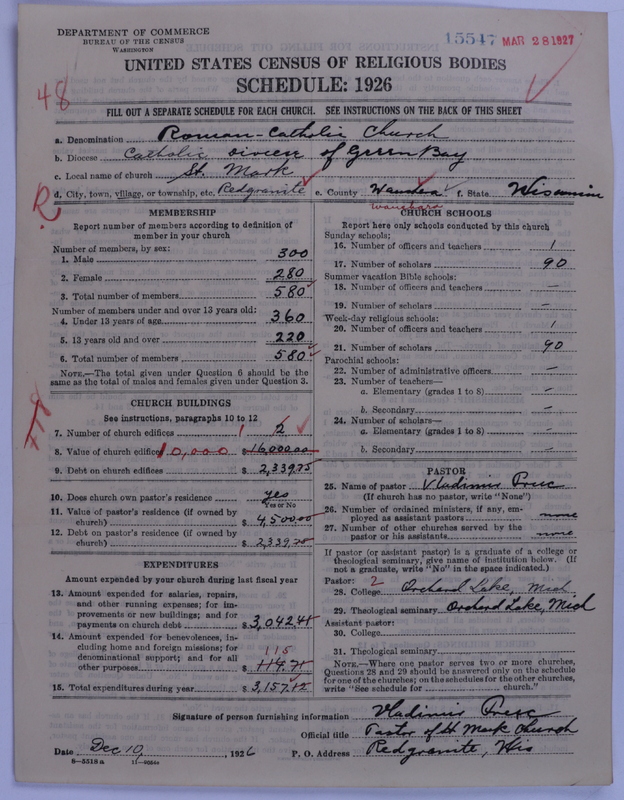 DEPARTMENT OF COMMERCE
BUREAU OF THE CENSUS
WASHINGTON
15547 MAR 28 1927
UNITED STATES CENSUS OF RELIGIOUS BODIES
SCHEDULE: 1926
48
FILL OUT A SEPARATE SCHEDULE FOR EACH CHURCH. SEE INSTRUCTIONS ON THE BACK OF THIS SHEET
a. Denomination Roman-Catholic Church
b. Diocese Catholic Diocese of Green Bay
c. Local name of church St. Mark
d. City, town, village, or township, etc. Redgranite e. County Waushara f. State Wisconsin
R
Waushara
MEMBERSHIP
Report number of members according to definition of
member in your church
Number of members, by sex:
1. Male 300
2. Female 280
3. Total number of members 580
Number of members under and over 13 years old:
4. Under 13 years of age 360
5. 13 years old and over 220
6. Total number of members 580
NOTE.—The total given under Question 6 should be
the same as the total of males and females given under Question 3.
CHURCH BUILDINGS
See instructions, paragraphs 10 to 12
7. Number of church edifices 1 2
8. Value of church edifices 10,000 $16,000.00
9. Debt on church edifices $2,339.75
10. Does church own pastor's residence yes
Yes or No
11. Value of pastor's residence (if owned by
church) $4,500.00
12. Debt on pastor's residence (if owned by
church) $2,339.75
EXPENDITURES
Amount expended by your church during last fiscal year
13. Amount expended for salaries, repairs,
and other running expenses; for im-
provements or new buildings; and for
payments on church debt $3,042.41
14. Amount expended for benevolences, in-
cluding home and foreign missions; for
denominational support; and for all
other purposes 115 $114.71
15. Total expenditures during year $3,157.12
CHURCH SCHOOLS
Report here only schools conducted by this church
Sunday schools:
16. Number of officers and teachers 1
17. Number of scholars 90
Summer vacation Bible schools:
18. Number of officers and teachers —
19. Number of scholars —
Week-day religious schools:
20. Number of officers and teachers 1
21. Number of scholars 90
Parochial schools:
22. Number of administrative officers —
23. Number of teachers—
a. Elementary (grades 1 to 8) —
b. Secondary —
24. Number of scholars—
a. Elementary (grades 1 to 8) —
b. Secondary —
PASTOR
25. Name of pastor Vladimir
(If church has no pastor, write "None")
26. Number of ordained ministers, if any, em-
ployed as assistant pastors none
27. Number of other churches served by the
pastor or his assistants none
If pastor (or assistant pastor) is a graduate of a college or
theological seminary, give name of institution below. (If
not a graduate, write "No" in the space indicated.)
Pastor: 2
28. College Orchard Lake, Mich.
29. Theological seminary Orchard Lake, Mich
Assistant pastor:
30. College
31. Theological seminary
NOTE.—Where one pastor serves two or more churches,
Questions 28 and 29 should be answered only on the schedule
for one of the churches; on the schedules for the other churches,
write "See schedule for church."
Signature of person furnishing information Vladimir
Official title Pastor of St Mark Church
Date Dec 10, 1926 P. O. Address Redgranite, Wis
8—5518a